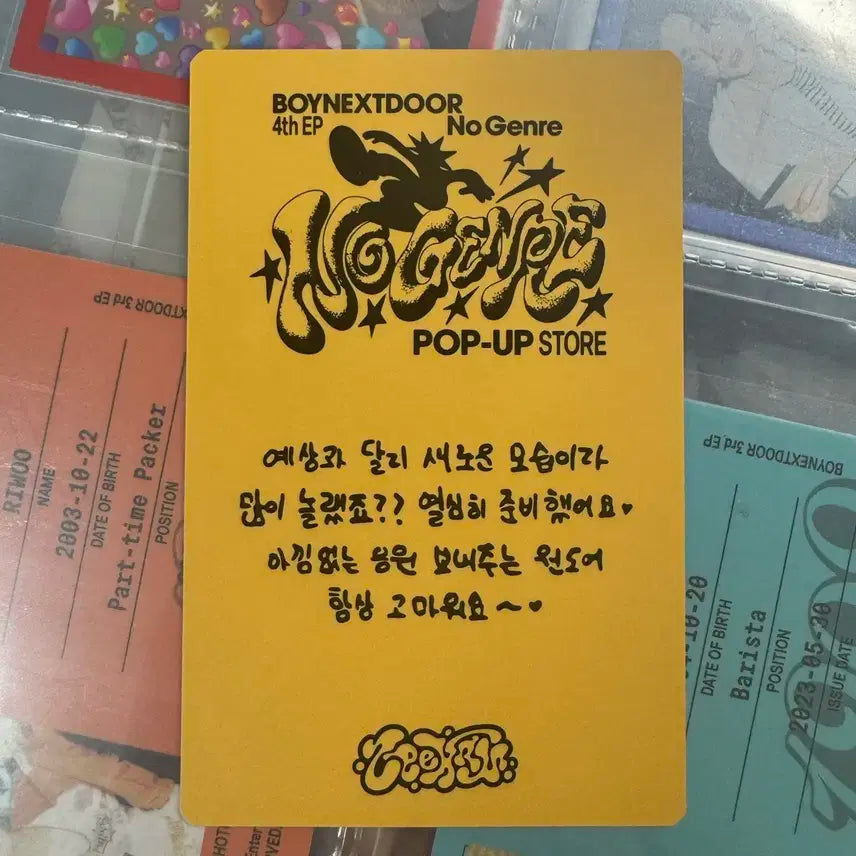 BOYNEXTDOOR
4th EP No Genre
NO GENRE
POP-UP STORE
예상과 달리 새로운 모습이라
많이 놀랬죠?? 열심히 준비했어요♥
아낌없는 응원 보내주는 원도어
항상 고마워요~♥
BOYNEXTDOOR 3rd EP
RIWOO
NAME
2003-10-22
DATE OF BIRTH
Part-time Packer
POSITION
BOYNEXTDOOR 3rd EP
DATE OF BIRTH
Barista
POSITION
2023-05-30
ISSUE DATE